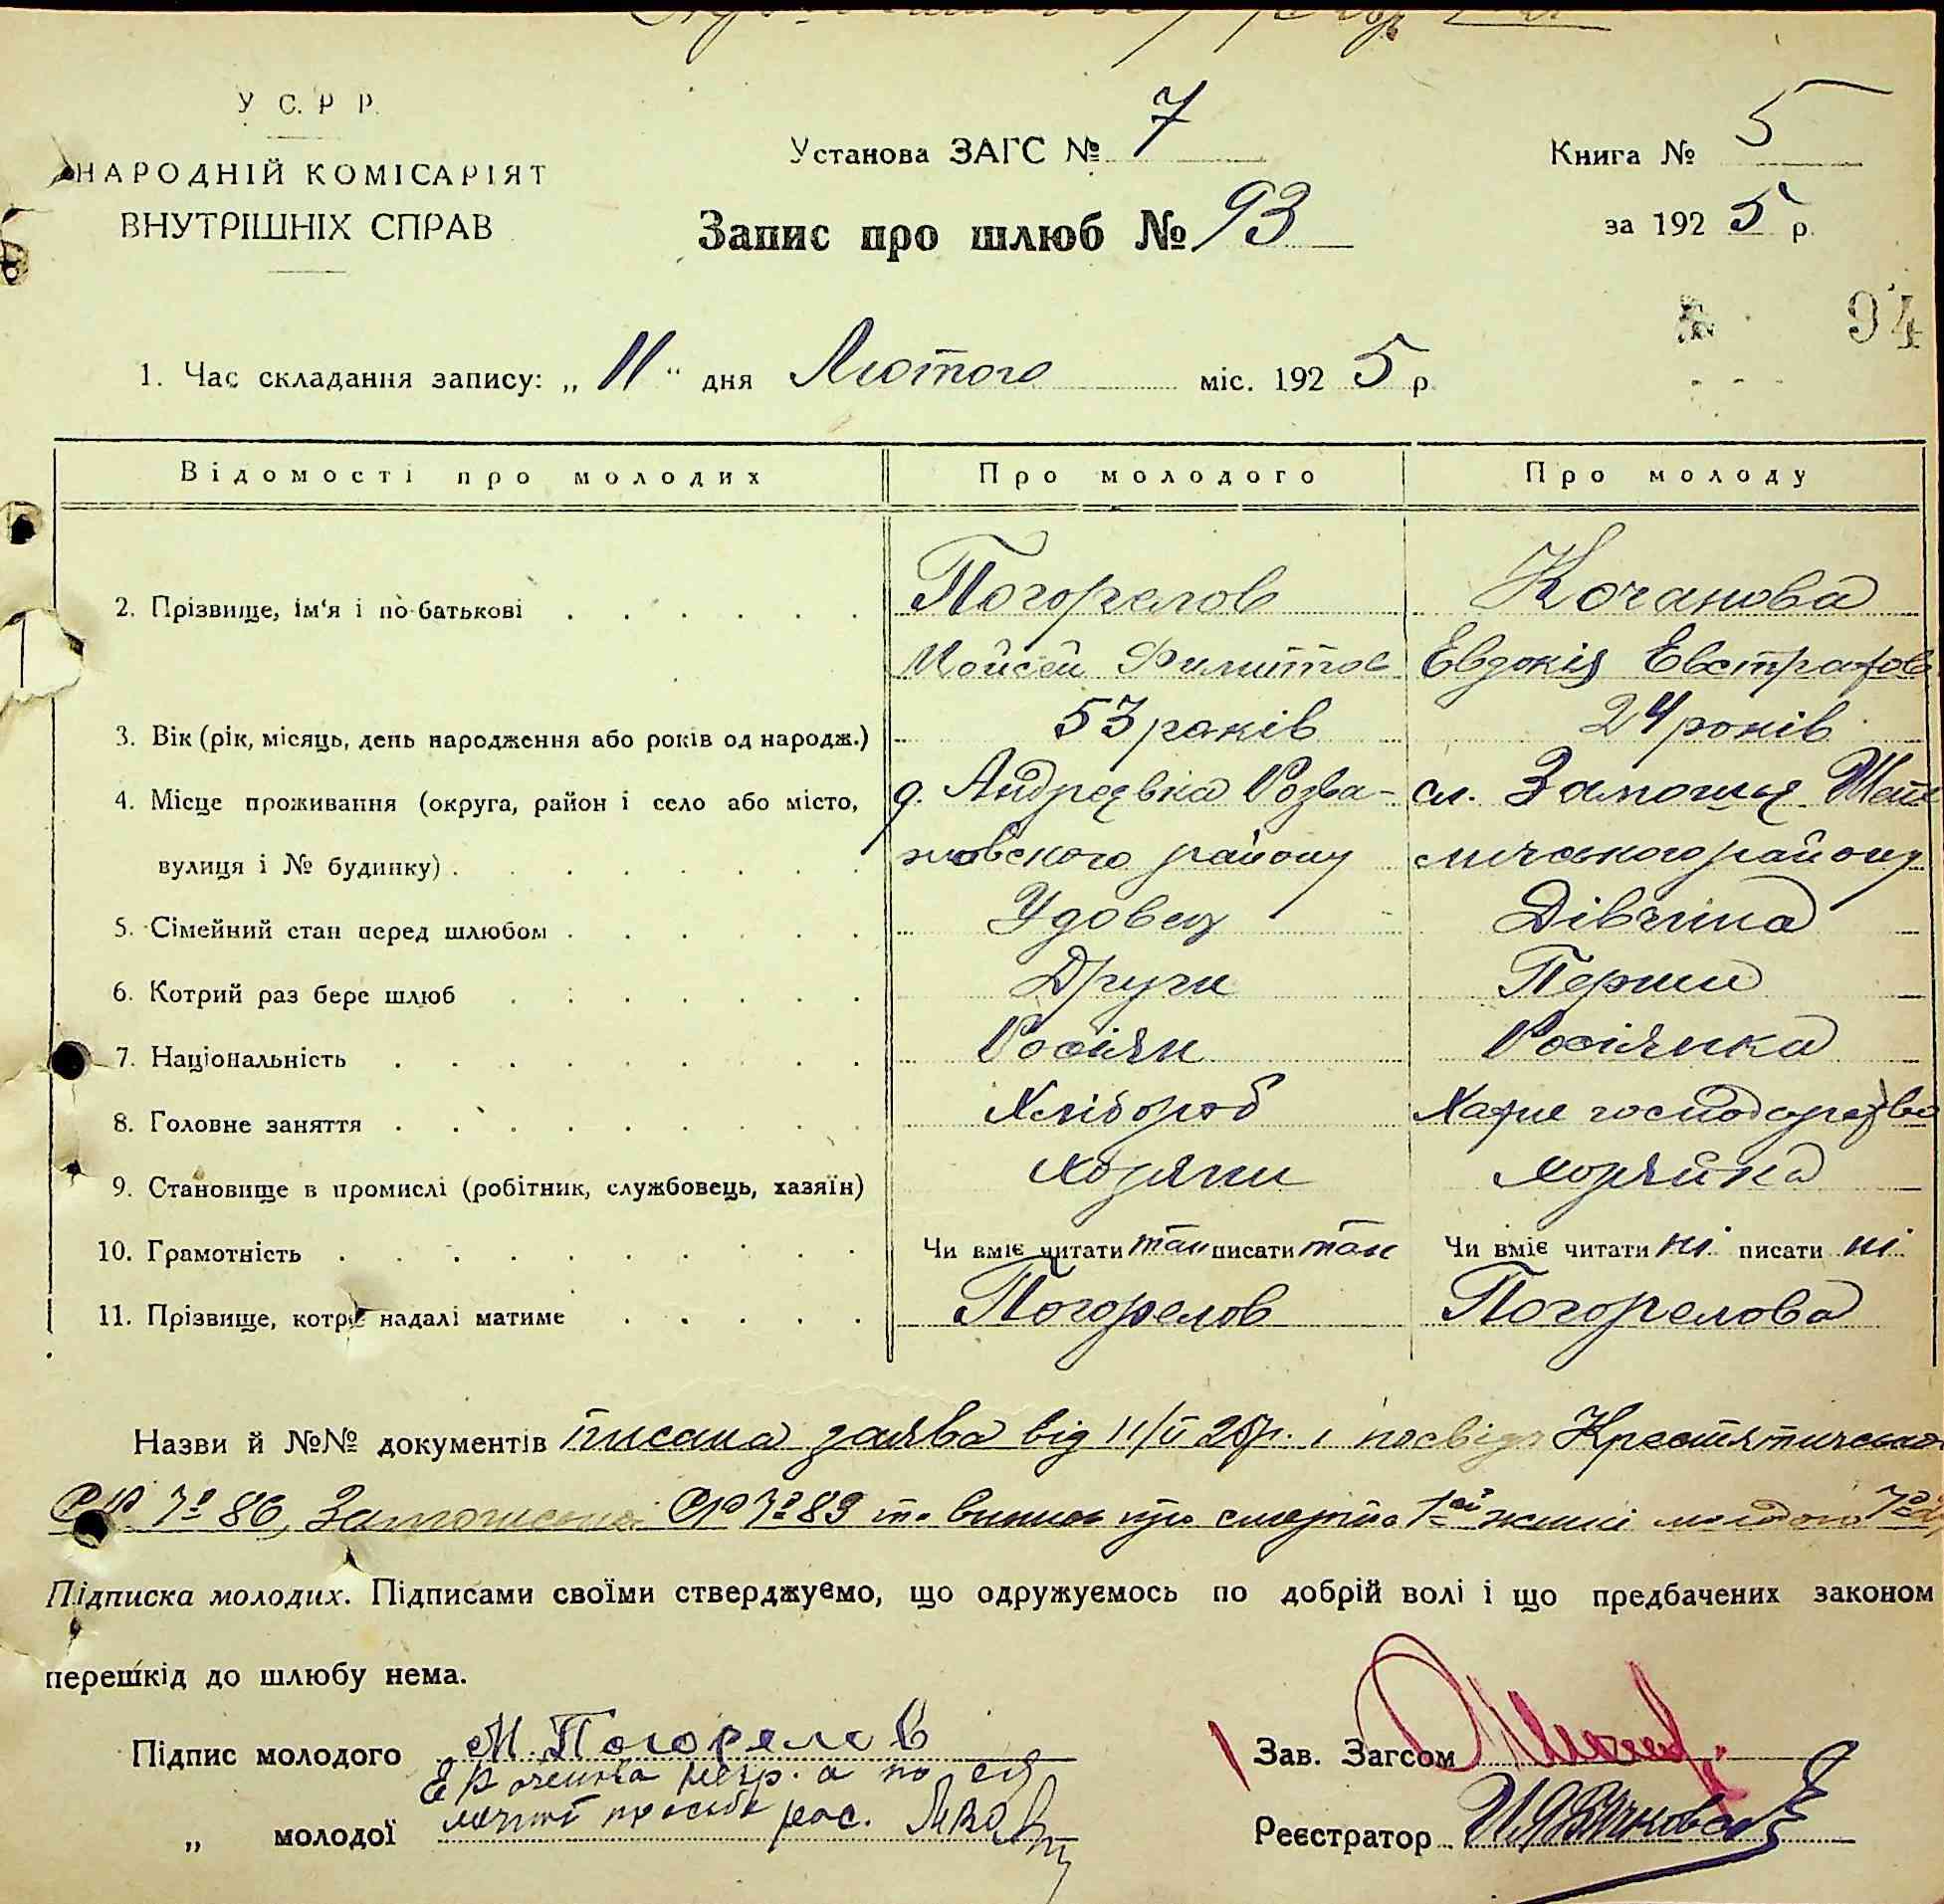 У С. Р Р.
НАРОДНІЙ КОМІСАРІЯТ
ВНУТРІШНІХ СПРАВ
Установа ЗАГС № 7
Книга № 5
Запис про шлюб № 93
за 1925 р.
94
1. Час складання запису: „ 11 “ дня Лютого міс. 1925 р
Відомості про молодих Про молодого Про молоду
2. Прізвище, ім'я і по-батькові Погорелов Кочанова
Мойсей Филиппов Евдокія Евстратов
3. Вік (рік, місяць, день народження або років од народж.) 53 років 24 років
4. Місце проживання (округа, район і село або місто, д. Андреєвка Розва-
вулиця і № будинку) жовского району району
5. Сімейний стан перед шлюбом Удовец Дівчина
6. Котрий раз бере шлюб Други Перши
7. Національність Росіян Росіянка
8. Головне заняття Хлібороб Хатне господарство
9. Становище в промислі (робітник, службовець, хазяїн) Хозяин Хозяйка
10. Грамотність Чи вміє читати так писати так Чи вміє читати ні писати ні
11. Прізвище, котре надалі матиме Погорелов Погорелова
Назви й №№ документів писана заява від 11/II 25р. і посвідч
№ 86, № 89 та випись про смерть 1ой жінкі молодого
Підписка молодих. Підписами своїми стверджуємо, що одружуємось по добрій волі і що предбачених законом
перешкід до шлюбу нема.
Підпис молодого М. Погорелов
Зав. Загсом
„ молодої
Реєстратор